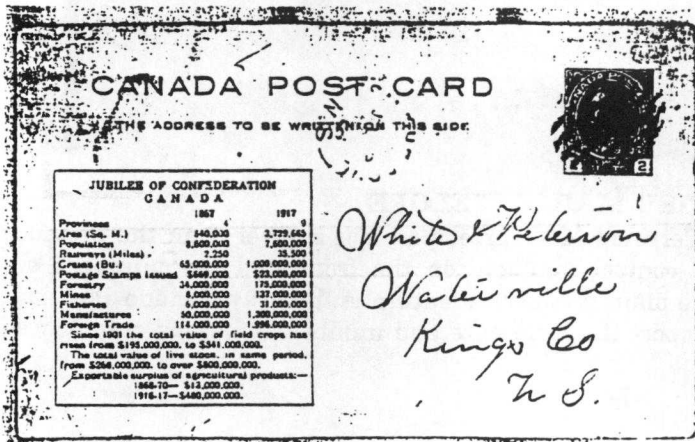 CANADA POST CARD
THE ADDRESS TO BE WRITTEN ON THIS SIDE
2
JUBILEE OF CONFEDERATION
CANADA
1867 1917
Provinces 9
Area (Sq. M.)
Population 7,600,000
Railways (Miles) 2,250
Grains (Bu.) 1,000,000,000
Postage Stamps Issued
Forestry 175,000,000
Mines
Fisheries
Manufactures 1,300,000,000
Foreign Trade 114,000,000 1,996,000,000
Since 1901 the total value of field crops has
risen from $195,000,000. to $541,000,000.
The total value of live stock, in same period,
from $268,000,000. to over $800,000,000.
Exportable surplus of agricultural products:—
1868-70— $13,000,000.
1916-17—$480,000,000.
White &
Waterville
Kings Co
N S.